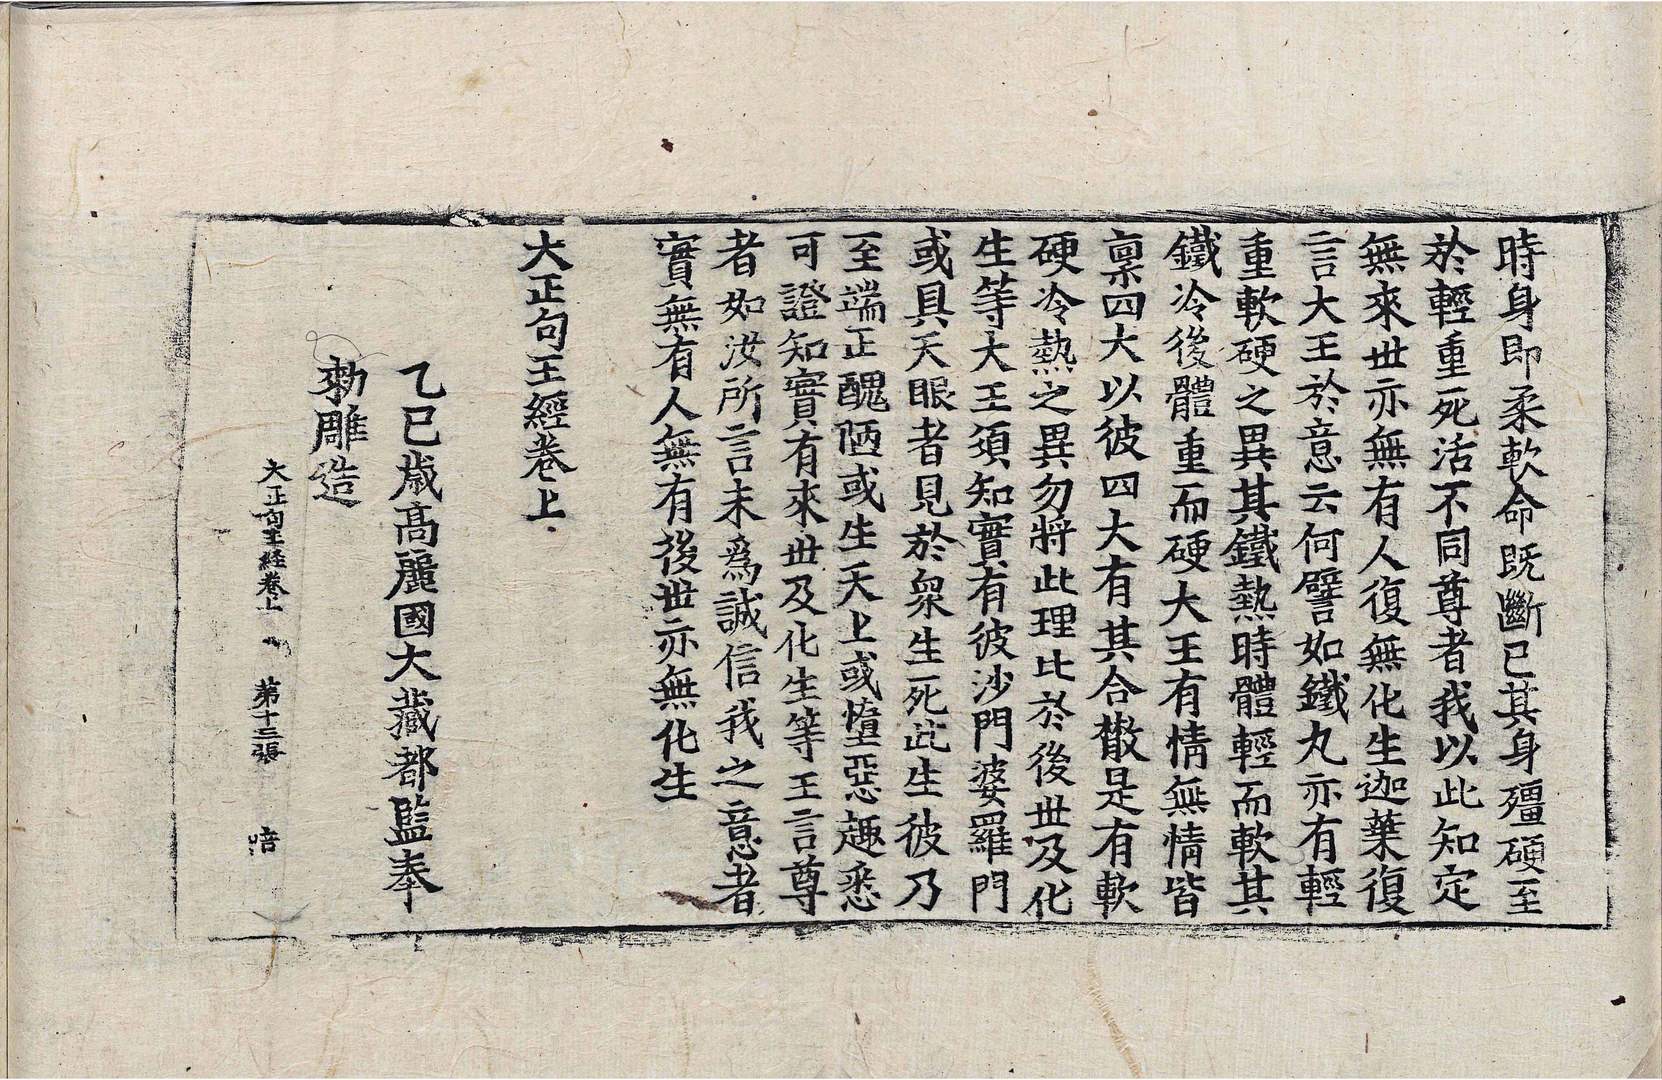 時身即柔軟命既斷已其身殭硬至
於輕重死活不同尊者我以此知定
無來世亦無有人復無化生迦葉復
言大王於意云何譬如鐵丸亦有輕
重軟硬之異其鐵熱時體輕而軟其
鐵冷後體重而硬大王有情無情皆
稟四大以彼四大有其合散是有軟
硬冷熱之異勿將此理比於後世及化
生等大王須知實有彼沙門婆羅門
或具天眼者見於衆生死此生彼乃
至端正醜陋或生天上或墮惡趣悉
可證知實有來世及化生等王言尊
者如汝所言未爲誠信我之意者
實無有人無有後世亦無化生
大正句王經卷上
乙巳歲高麗國大藏都監奉
勑雕造
大正句王經卷上 第十三張